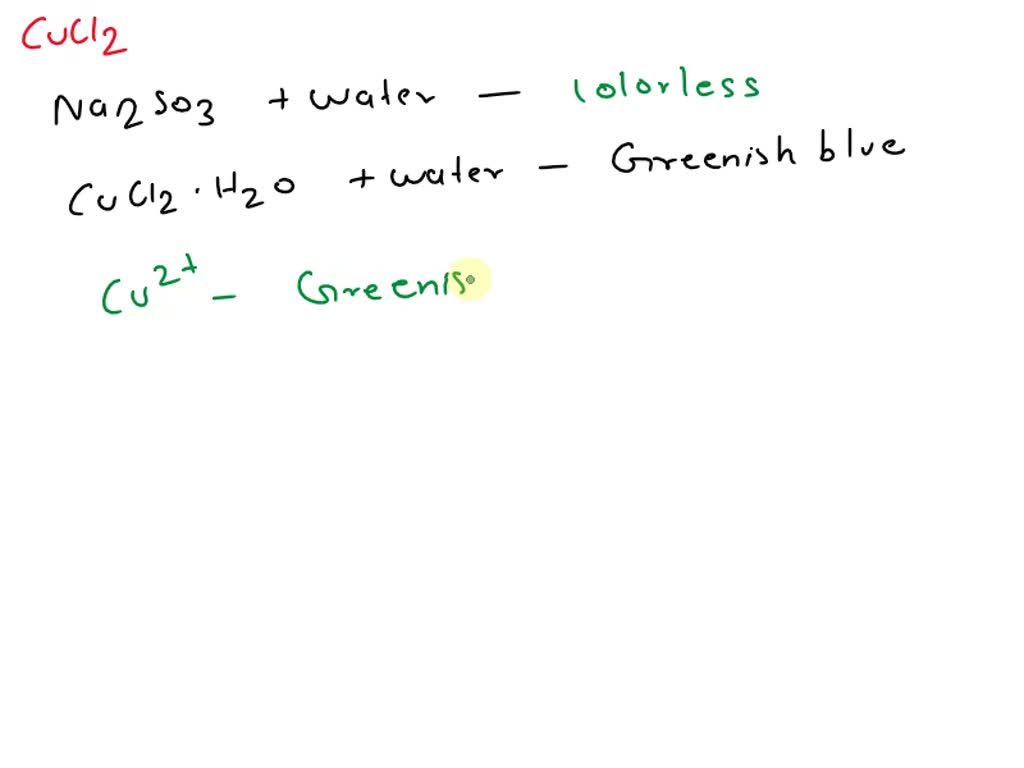 CuCl2
Na2SO3 + water — colorless
CuCl2 · H2O + water — Greenish blue
Cu2+ – Greenis